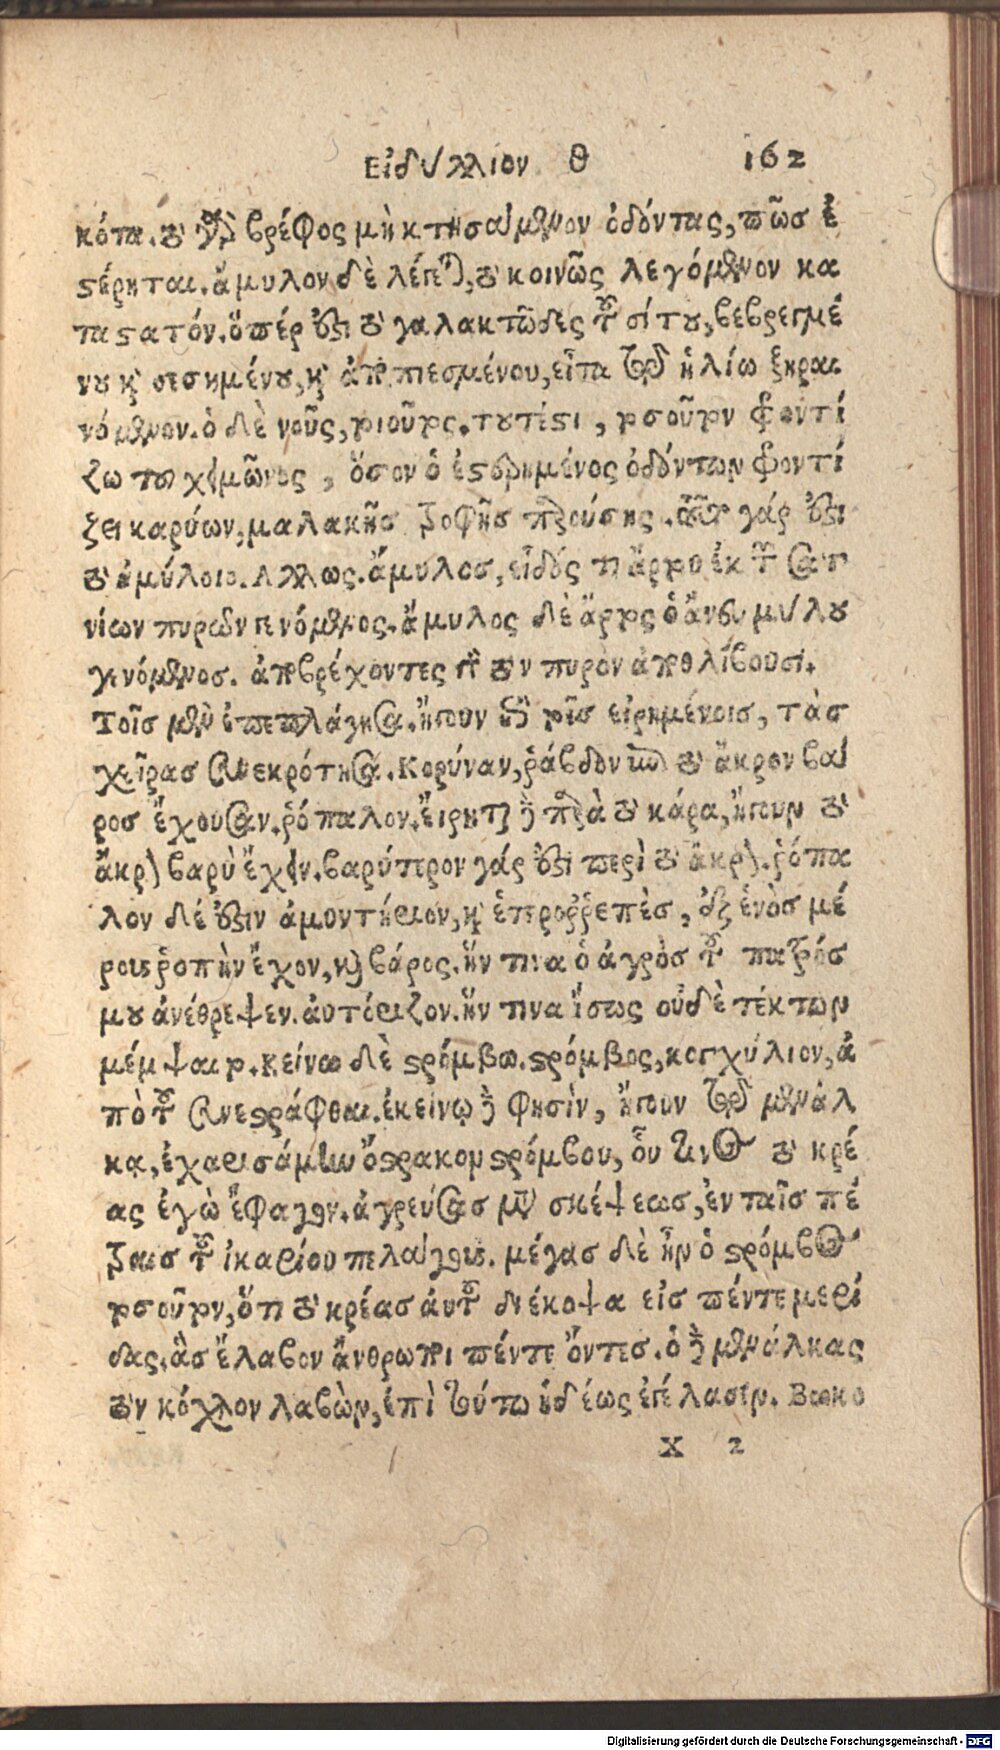 Εἰδύλλιον Θ 162
κότα. τὸ γὸ βρέφος μὴ κτησάμενον ὀδόντας, πῶς ἐ
στέρηται. ἄμυλον δὲ λέγει, τὸ κοινῶς λεγόμενον κα
ταστατόν. ὅπέρ ἐστι τὸ γαλακτῶδες τοῦ σίτου, βεβρεγμέ
νου καὶ σεσημένου, καὶ ἀποπιεσμένου, εἶτα τῷ ἡλίω ξηραι
νόμενον. ὁ δὲ νοῦς, τοιοῦτος. τουτέστι, τοσοῦτον φροντί
ζω τοῦ χειμῶνος, ὅσον ὁ ἐστερημένος ὀδόντων φροντί
ζει καρύων, μαλακῆς τροφῆς παρούσης. τοῦτο γάρ ἐστι
τὸ ἀμύλοιο. Αλλως. ἄμυλος, εἶδός τι ἄρτου ἐκ τῶν σατ
νίων πυρῶν γενόμενος. ἄμυλος δὲ ἄρτος ὁ ἄνευ μύλου
γινόμενος. ἀποβρέχοντες γὰρ τὸν πυρὸν ἀποθλίβουσι.
Τοῖς μὲν ἐπεπλάγησα. ἤγουν ἐπὶ τοῖς εἰρημένοις, τὰς
χεῖρας συνεκρότησα. Κορύναν, ῥάβδον ὑπὸ τὸ ἄκρον βά
ρος ἔχουσαν. ῥόπαλον. εἴρηται δὲ παρὰ τὸ κάρα, ἤγουν τὸ
ἄκρον βαρὺ ἔχειν. βαρύτερον γάρ ἐστι περὶ τὸ ἄκρον. ῥόπα
λον δέ ἐστιν ἀμυντήριον, καὶ ἑτερορρεπὲς, ἐξ ἑνὸς μέ
ρους ῥοπὴν ἔχον, καὶ βάρος. ἥν τινα ὁ ἀγρὸς τοῦ πατρός
μου ἀνέθρεψεν. αὐτόριζον. ἥν τινα ἴσως οὐδὲ τέκτων
μέμψαιτο. κείνω δὲ στρόμβω. στρόμβος, κογχύλιον, ἀ
πὸ τοῦ συνεστράφθαι. ἐκείνῳ δὲ φησὶν, ἤγουν τῷ μενάλ
κα, ἐχαρισάμην ὄστρακον στρόμβου, οὗ τινος τὸ κρέ
ας ἐγὼ ἔφαγον. ἀγρεύσας μετὰ σκέψεως, ἐν ταῖς πέ
τραις τοῦ ἰκαρίου πελάγους. μέγας δὲ ἦν ὁ στρόμβος
τοσοῦτον, ὅτι τὸ κρέας αὐτοῦ διέκοψα εἰς πέντε μερί
δας. ἃς ἔλαβον ἄνθρωποι πέντε ὄντες. ὁ δὲ μενάλκας
τὸν κόχλον λαβὼν, ἐπὶ τούτω ἡδέως ἐγέλασεν. Βωκο
X 2
Digitalisierung gefördert durch die Deutsche Forschungsgemeinschaft - DFG